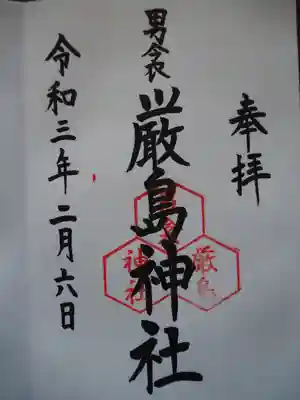 奉拝
男衾
厳島神社
男衾
厳島
神社
令和三年二月六日